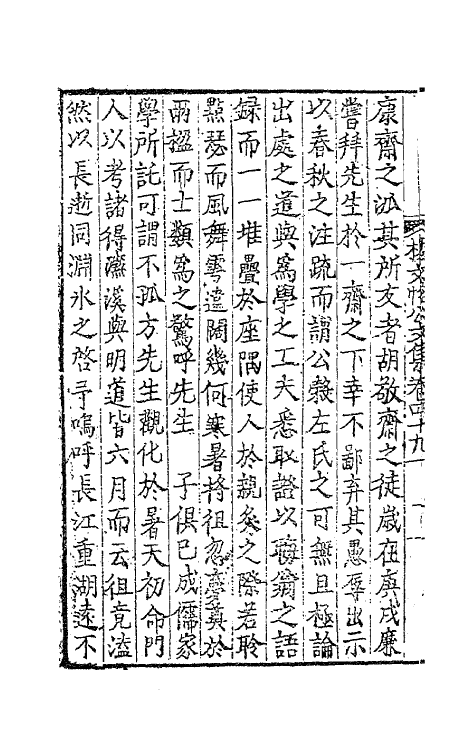 康齋之派其所友者胡敬齋之徒歲在庚戌廉
嘗拜先生於一齋之下幸不鄙弃其愚辱出示
以春秋之注疏而謂公穀左氏之可無且極論
出處之道與為學之工夫悉取證以晦翁之語
録而一一堆疊於座隅使人於親炙之際若聆
點瑟而風舞雩違闊幾何寒暑將徂忽夢奠於
兩楹而士類為之驚呼先生　子俱已成儒家
學所託可謂不孤方先生觀化於暑天初命門
人以考諸得濂溪與明道皆六月而云徂竟溘
然以長逝同淵氷之啓予嗚呼長江重湖遠不
文集卷四十九